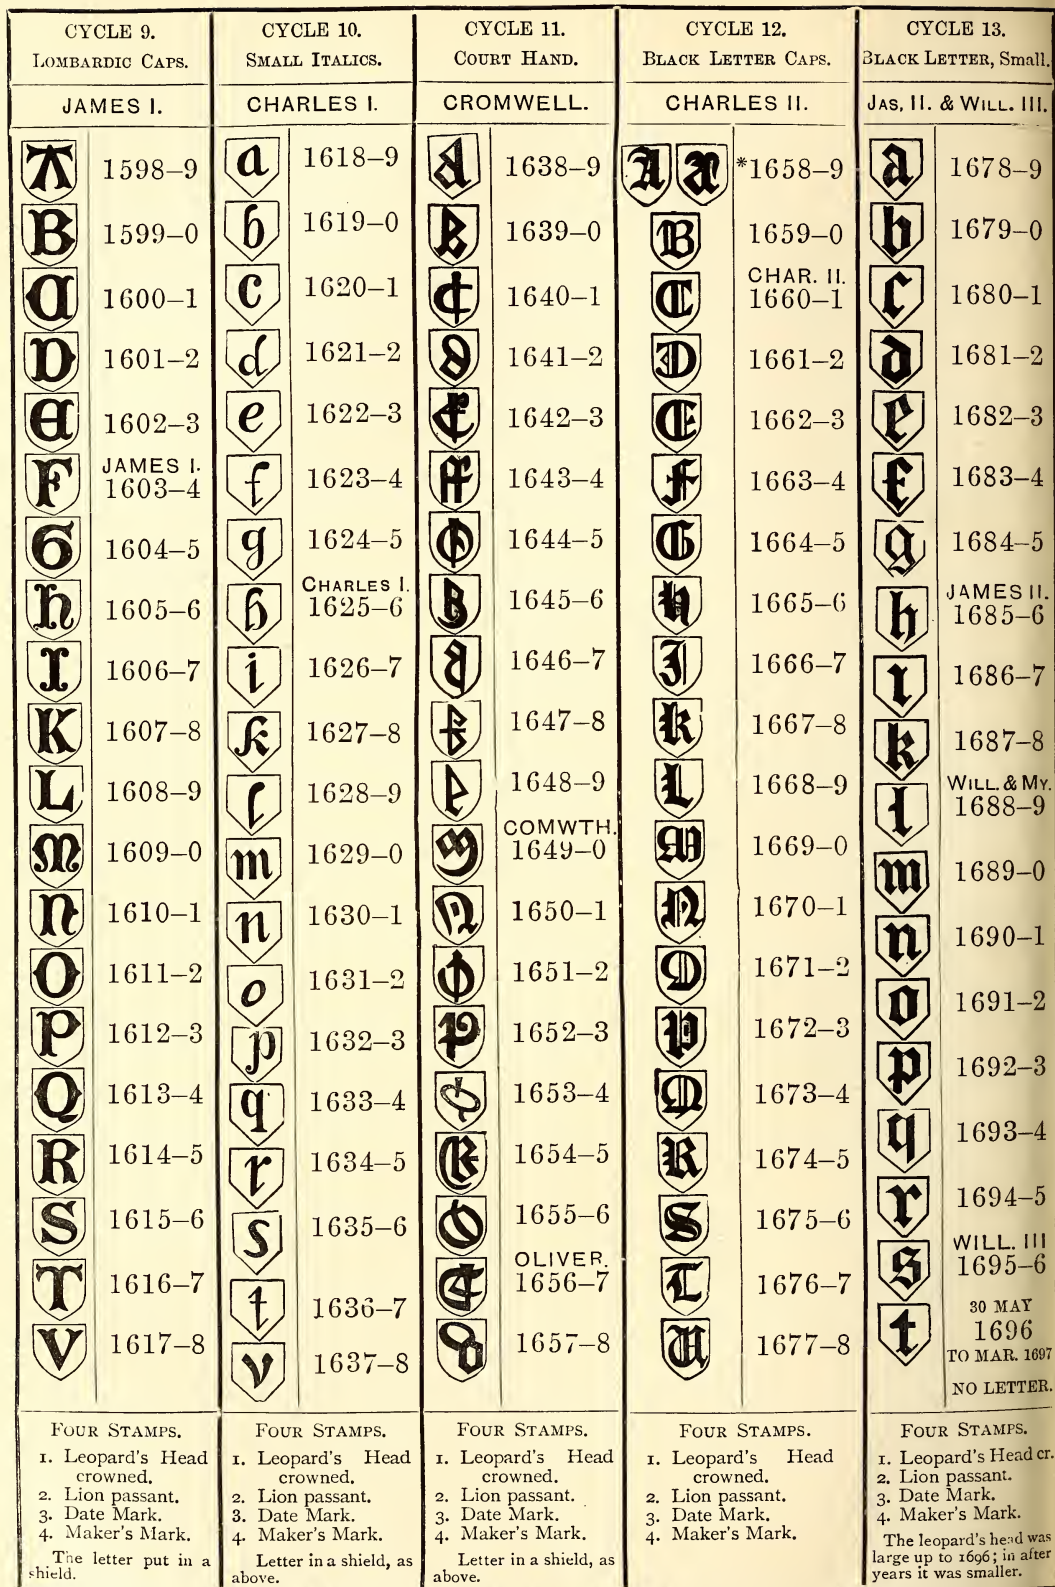 CYCLE 9.
LOMBARDIC CAPS.
JAMES I.
A 1598–9
B 1599–0
C 1600–1
D 1601–2
E 1602–3
JAMES I.
F 1603–4
G 1604–5
H 1605–6
I 1606–7
K 1607–8
L 1608–9
M 1609–0
N 1610–1
O 1611–2
P 1612–3
Q 1613–4
R 1614–5
S 1615–6
T 1616–7
V 1617–8
FOUR STAMPS.
1. Leopard's Head
crowned.
2. Lion passant.
3. Date Mark.
4. Maker's Mark.
The letter put in a
shield.
CYCLE 10.
SMALL ITALICS.
CHARLES I.
a 1618–9
b 1619–0
c 1620–1
d 1621–2
e 1622–3
f 1623–4
g 1624–5
CHARLES I.
h 1625–6
i 1626–7
k 1627–8
l 1628–9
m 1629–0
n 1630–1
o 1631–2
p 1632–3
q 1633–4
r 1634–5
s 1635–6
t 1636–7
v 1637–8
FOUR STAMPS.
1. Leopard's Head
crowned.
2. Lion passant.
3. Date Mark.
4. Maker's Mark.
Letter in a shield, as
above.
CYCLE 11.
COURT HAND.
CROMWELL.
1638–9
1639–0
1640–1
1641–2
1642–3
1643–4
1644–5
1645–6
1646–7
1647–8
1648–9
COMWTH.
1649–0
1650–1
1651–2
1652–3
1653–4
1654–5
1655–6
OLIVER.
1656–7
1657–8
FOUR STAMPS.
1. Leopard's Head
crowned.
2. Lion passant.
3. Date Mark.
4. Maker's Mark.
Letter in a shield, as
above.
CYCLE 12.
BLACK LETTER CAPS.
CHARLES II.
A A *1658–9
B 1659–0
CHAR. II.
C 1660–1
D 1661–2
E 1662–3
F 1663–4
G 1664–5
H 1665–6
I 1666–7
K 1667–8
L 1668–9
M 1669–0
N 1670–1
O 1671–2
P 1672–3
Q 1673–4
R 1674–5
S 1675–6
T 1676–7
U 1677–8
FOUR STAMPS.
1. Leopard's Head
crowned.
2. Lion passant.
3. Date Mark.
4. Maker's Mark.
CYCLE 13.
BLACK LETTER, Small.
JAS, II. & WILL. III.
a 1678–9
b 1679–0
c 1680–1
d 1681–2
e 1682–3
f 1683–4
g 1684–5
JAMES II.
h 1685–6
i 1686–7
k 1687–8
WILL. & MY.
l 1688–9
m 1689–0
n 1690–1
o 1691–2
p 1692–3
q 1693–4
r 1694–5
WILL. III
s 1695–6
t 30 MAY
1696
TO MAR. 1697
NO LETTER.
FOUR STAMPS.
1. Leopard's Head cr.
2. Lion passant.
3. Date Mark.
4. Maker's Mark.
The leopard's head was
large up to 1696; in after
years it was smaller.